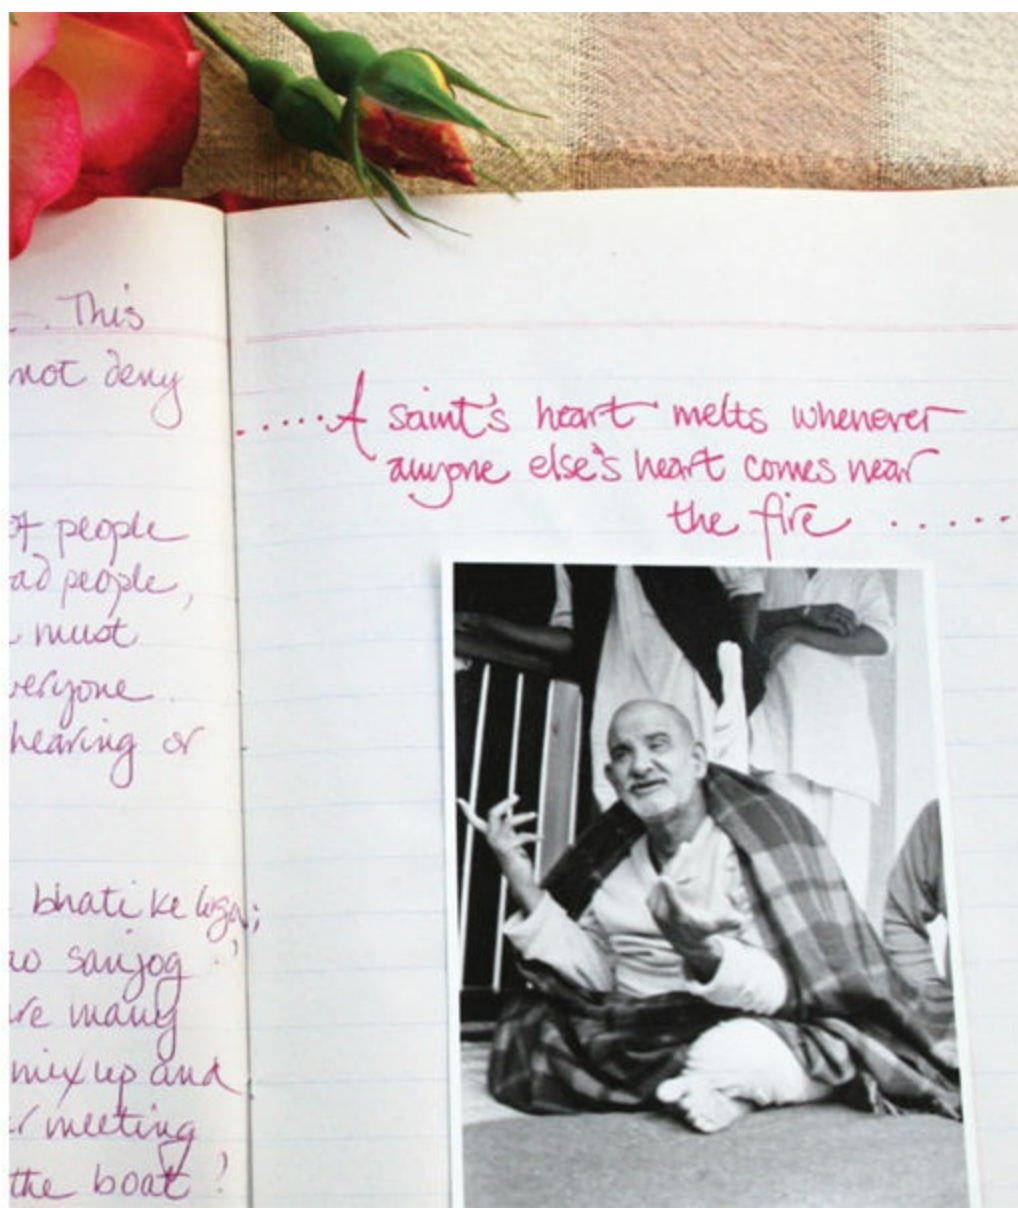 . . This
not deny
of people
ad people,
must
veryone.
hearing or
bhati ke loga;
ao sanjog.'
re many
mix up and
r meeting
the boat!
.....A saint's heart melts whenever
anyone else's heart comes near
the fire ......